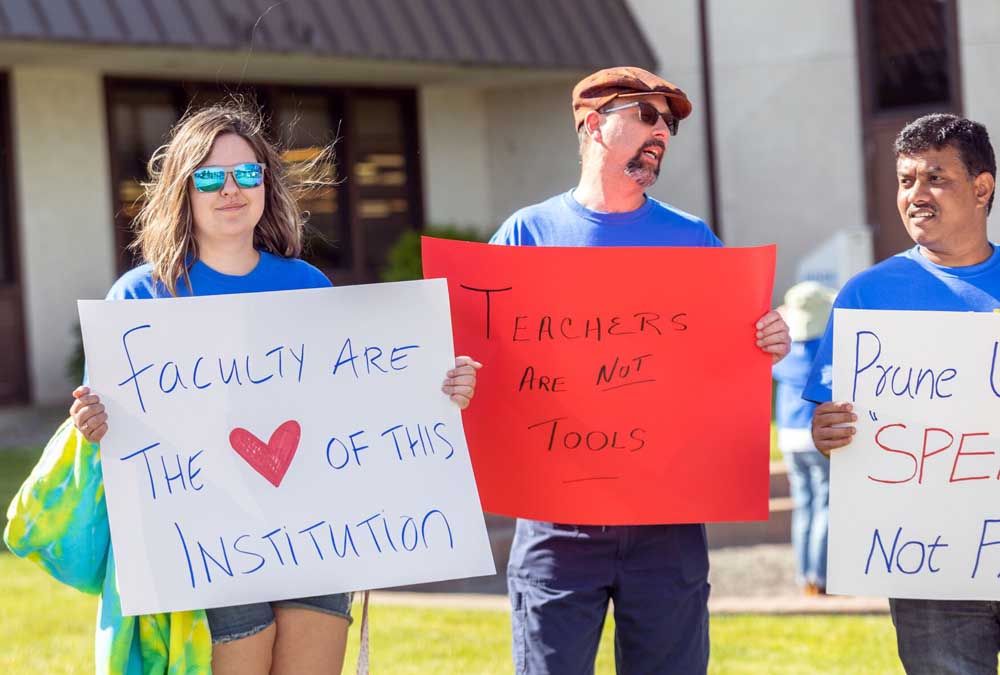 FACULTY ARE
THE ❤ OF THIS
INSTITUTION
TEACHERS
ARE NOT
TOOLS
Prune
"SPE
Not